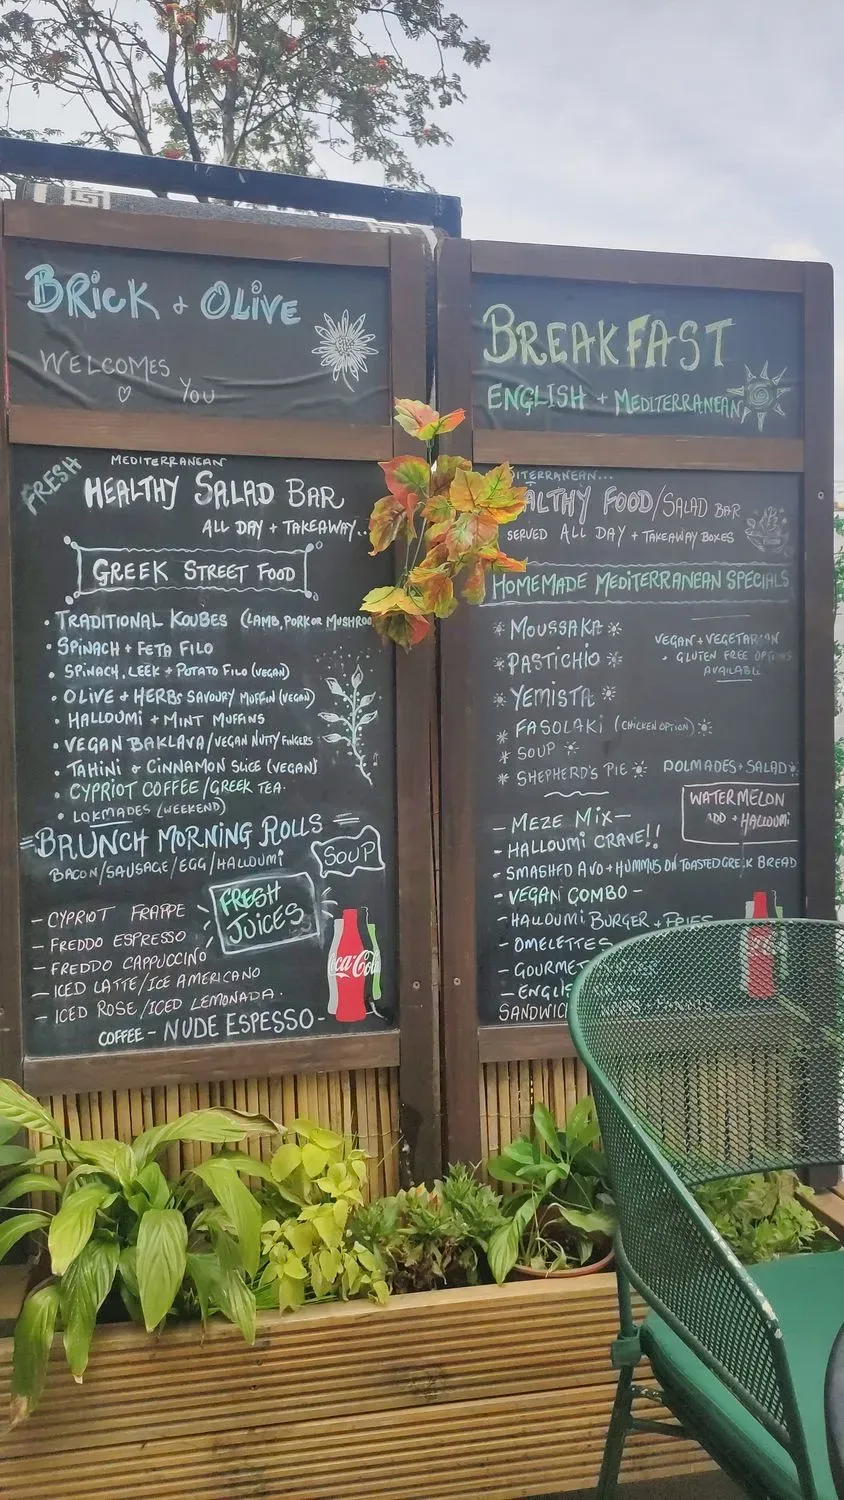 BRICK & OLIVE
WELCOMES
YOU
FRESH
MEDITERRANEAN
HEALTHY SALAD BAR
ALL DAY + TAKEAWAY..
GREEK STREET FOOD
• TRADITIONAL KOUBES (LAMB, PORK OR
• SPINACH + FETA FILO
• SPINACH, LEEK + POTATO FILO (VEGAN)
• OLIVE + HERBS SAVOURY MUFFIN (VEGAN)
• HALLOUMI + MINT MUFFINS
• VEGAN BAKLAVA/VEGAN NUTTY FINGERS
• TAHINI & CINNAMON SLICE (VEGAN)
• CYPRIOT COFFEE/GREEK TEA.
• LOKMADES (WEEKEND)
BRUNCH MORNING ROLLS
BACON/SAUSAGE/EGG/HALLOUMI
SOUP
FRESH
JUICES
- CYPRIOT FRAPPE
- FREDDO ESPRESSO
- FREDDO CAPPUCCINO
- ICED LATTE/ICE AMERICANO
- ICED ROSE/ICED LEMONADA.
COFFEE - NUDE ESPESSO -
Coca-Cola
BREAKFAST
ENGLISH + MEDITERRANEAN
FOOD/SALAD BAR
SERVED ALL DAY + TAKEAWAY BOXES
HOMEMADE MEDITERRANEAN SPECIALS
* MOUSSAKA *
* PASTICHIO *
* YEMISTA *
VEGAN + VEGETARIAN
• GLUTEN FREE OPTIONS
AVAILABLE
* FASOLAKI (CHICKEN OPTION) *
* SOUP *
* SHEPHERD'S PIE *
DOLMADES + SALAD *
WATERMELON
ADD + HALLOUMI
- MEZE MIX -
- HALLOUMI CRAVE!!
- SMASHED AVO + HUMMUS ON TOASTED GREEK BREAD
- VEGAN COMBO -
- HALLOUMI BURGER + FRIES
- OMELETTES